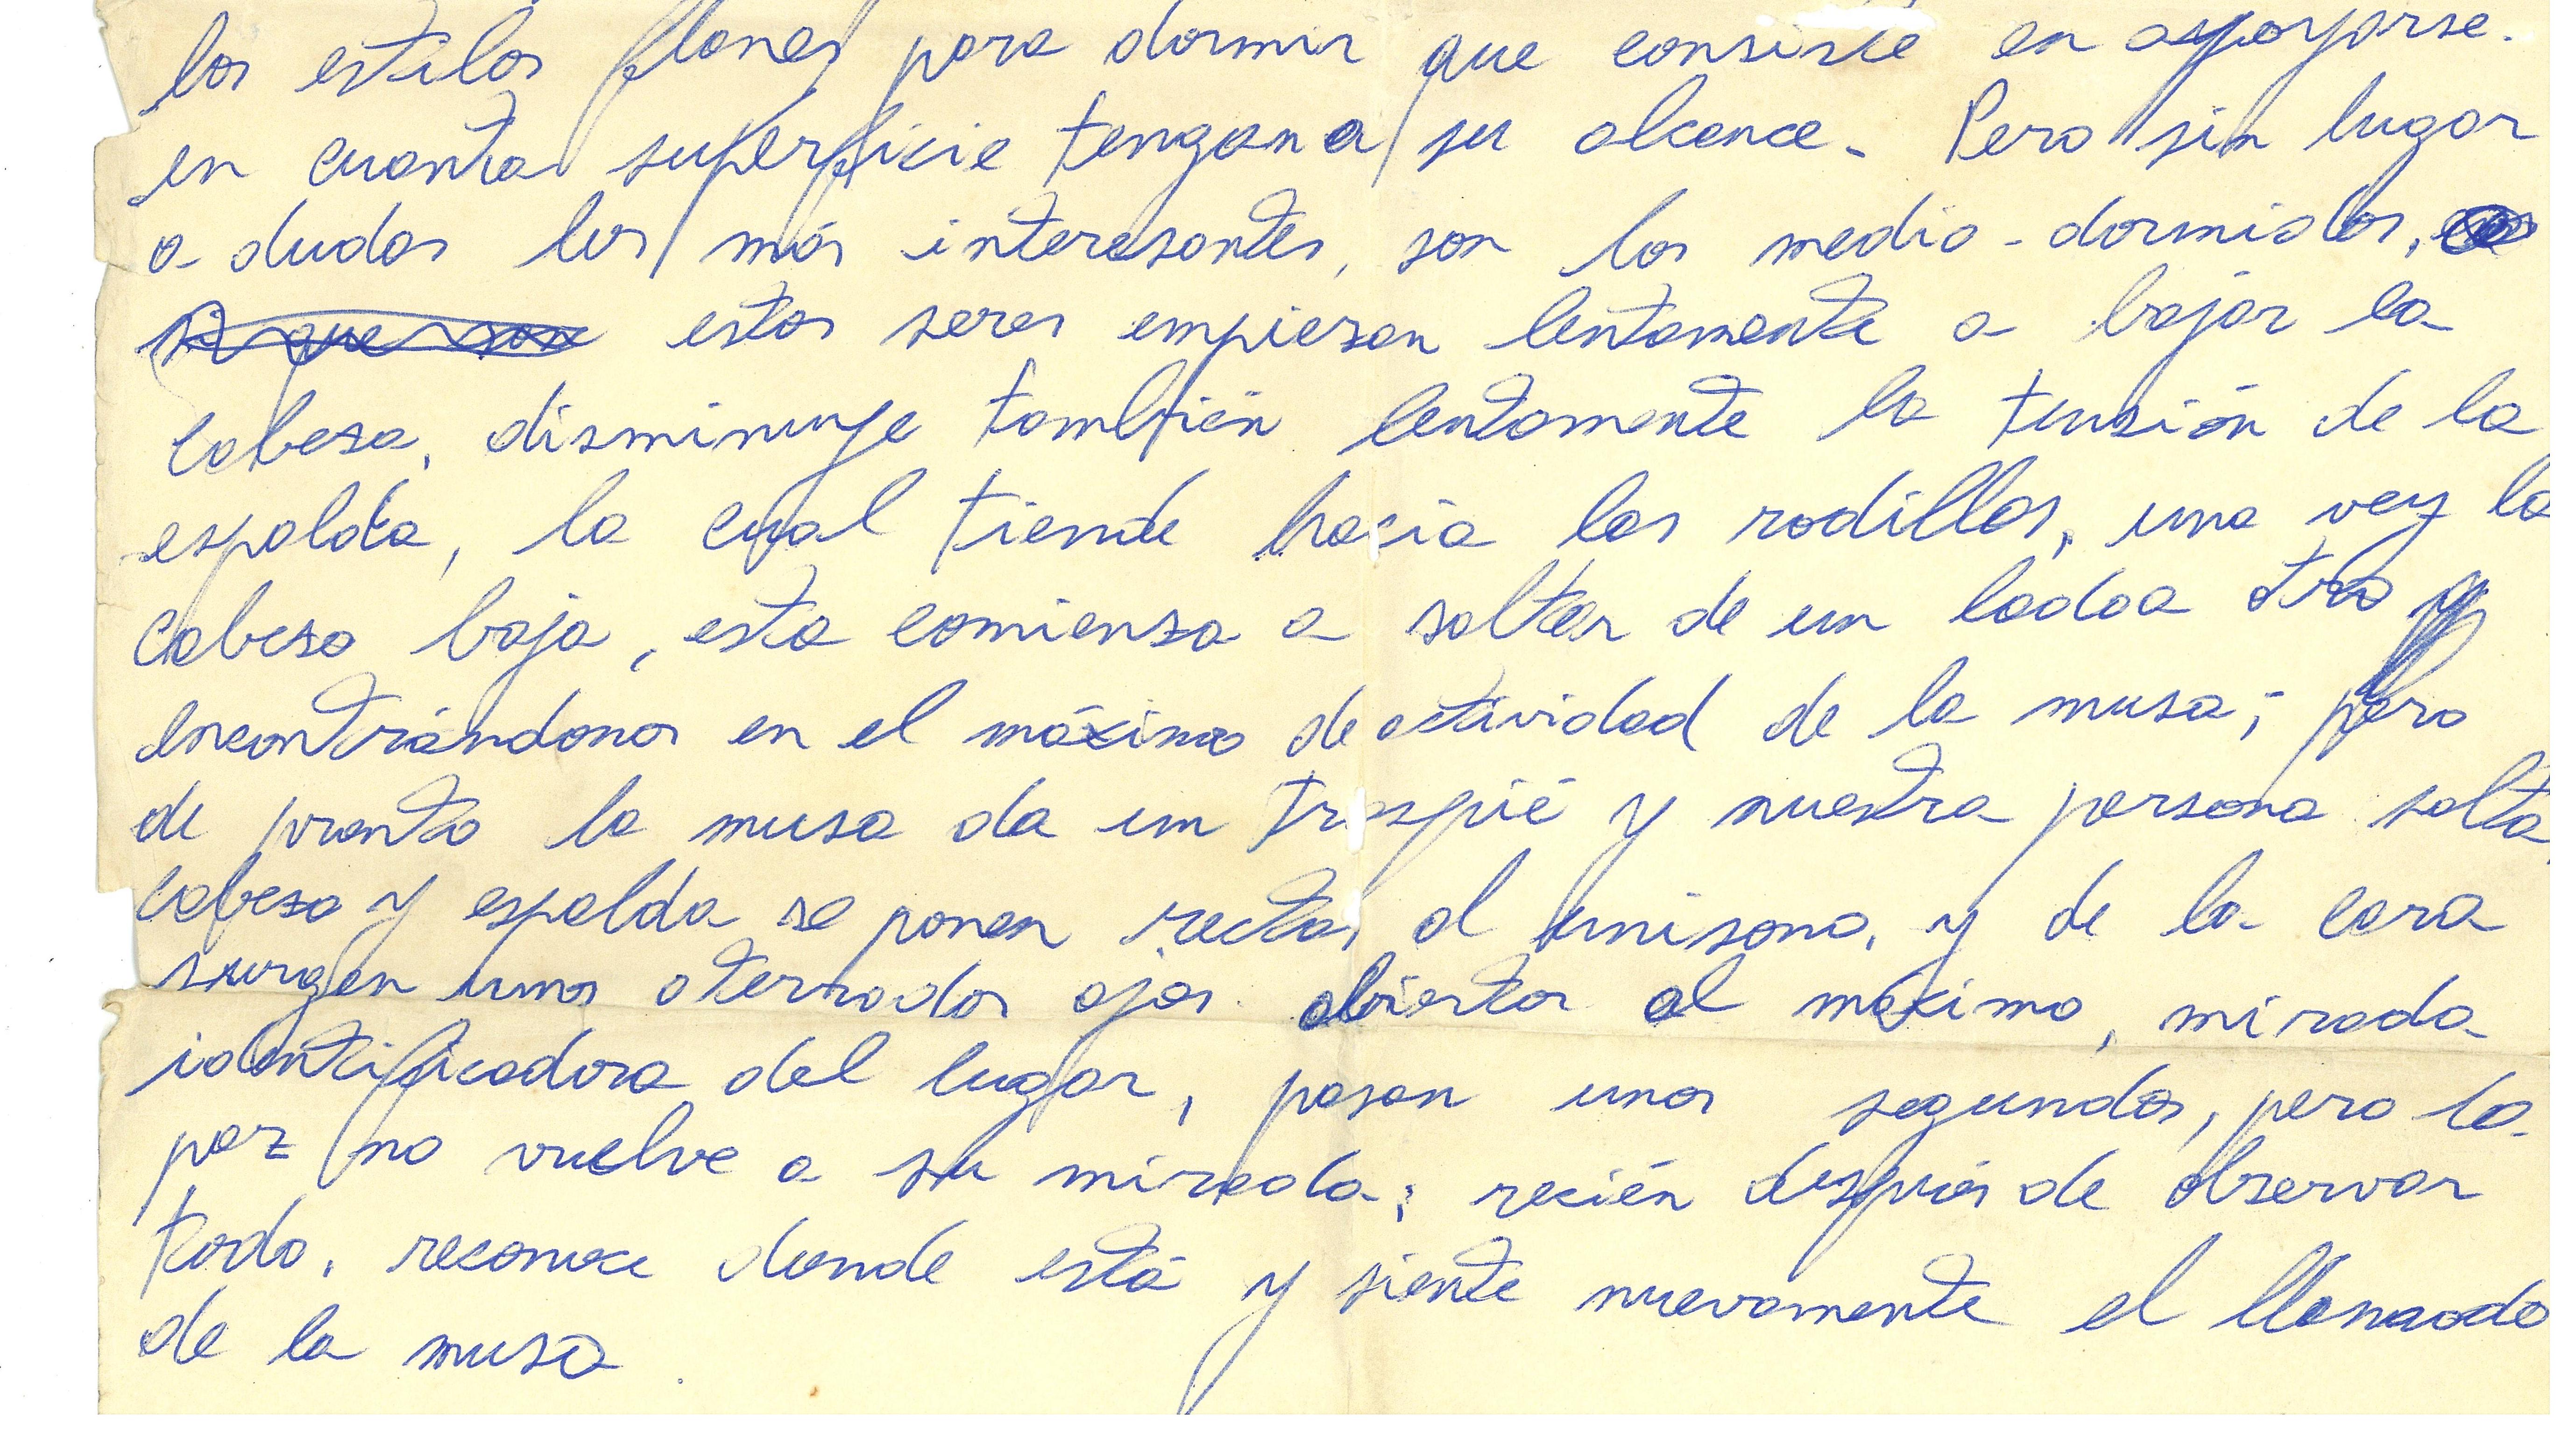 los estilos flanes para dormir que consiste en apoyarse.
en cuanta superficie tengan a su alcance. Pero sin lugar
a dudas los más interesantes, son los medio-dormidos,
si que son estos seres empiesan lentamente a bajar la
cabesa, disminuye también lentamente la tensión de la
espalda, la cual tiende hacia las rodillas, una vez la
cabesa baja, esta comiensa a saltar de un lado a otro y
encontrándonos en el máximo de actividad de la musa; pero
de pronto la musa da un traspié y nuestra persona salta,
cabesa y espalda se ponen rectas al unisono, y de la cara
surgen unos aterrados ojos abiertos al maximo, mirada
identificadora del lugar, pasan unos segundos, pero la
paz no vuelve a su mirada; recién después de observar
todo, reconoce donde está y siente nuevamente el llamado
de la musa.